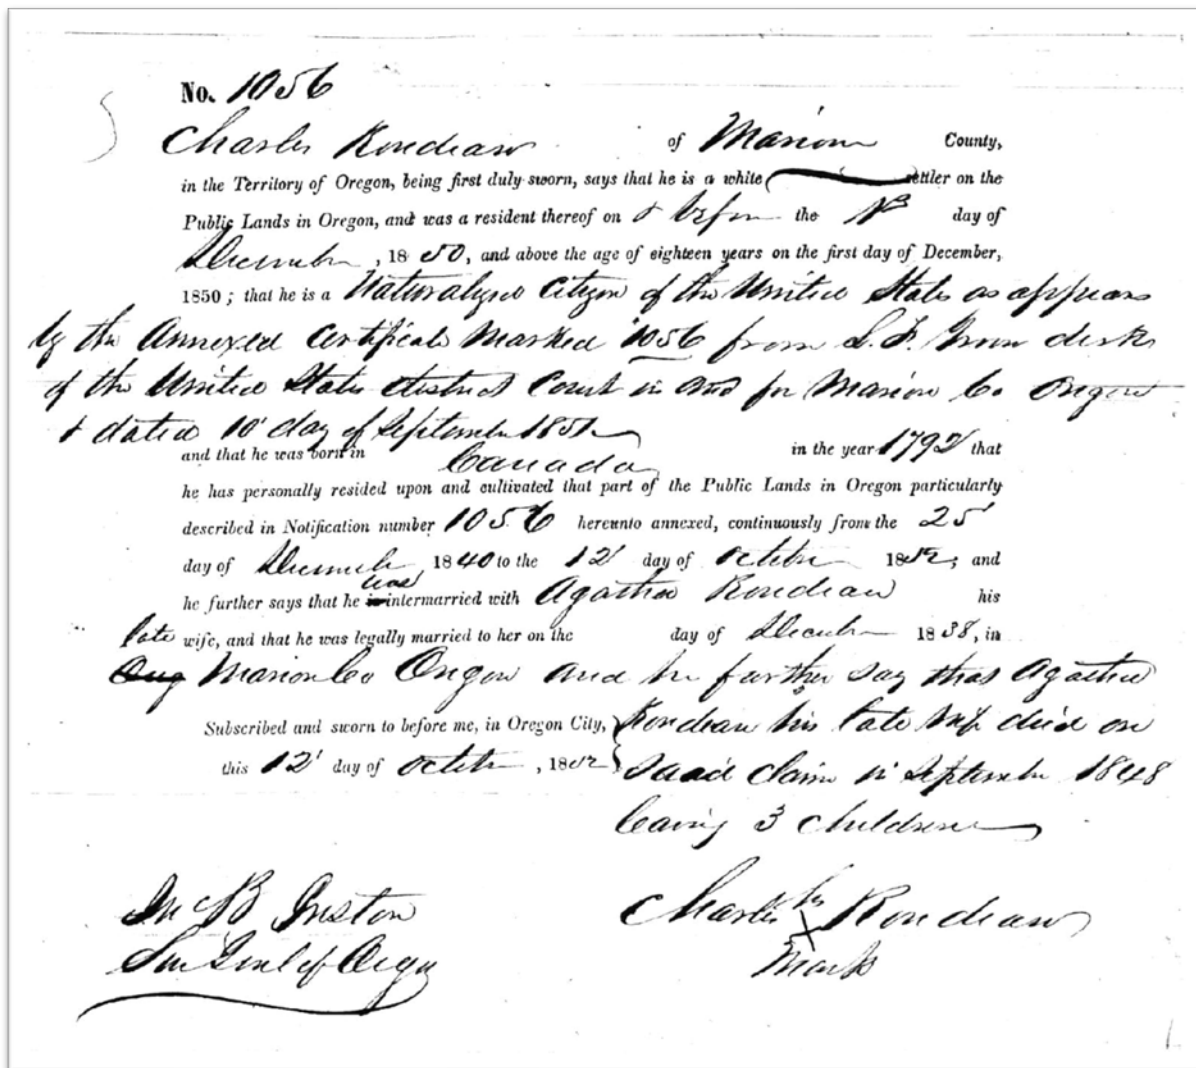 No. 1056
Charles Rondeau of Marion County,
in the Territory of Oregon, being first duly sworn, says that he is a white settler on the
Public Lands in Oregon, and was a resident thereof on & before the 1st day of
December, 1850, and above the age of eighteen years on the first day of December,
1850; that he is a Naturalized Citizen of the United States as appears
by the Annexed Certificate Marked 1056 from clerk
of the United States district Court in and for Marion Co Oregon
& dated 10 day of September 1851
and that he was born in Canada in the year 1792 that
he has personally resided upon and cultivated that part of the Public Lands in Oregon particularly
described in Notification number 1056 hereunto annexed, continuously from the 25
day of December 1840 to the 12 day of October 1852; and
he further says that he was intermarried with Agatha Rondeau his
late wife, and that he was legally married to her on the day of December 1838, in
Marion Co Oregon and he further say that Agatha
Subscribed and sworn to before me, in Oregon City, Rondeau his late wife died on
this 12 day of October, 1852 said Claim in September 1848
leaving 3 children
Charles his Rondeau
Jno B Preston
X
Sur Genl of Oregn
Mark